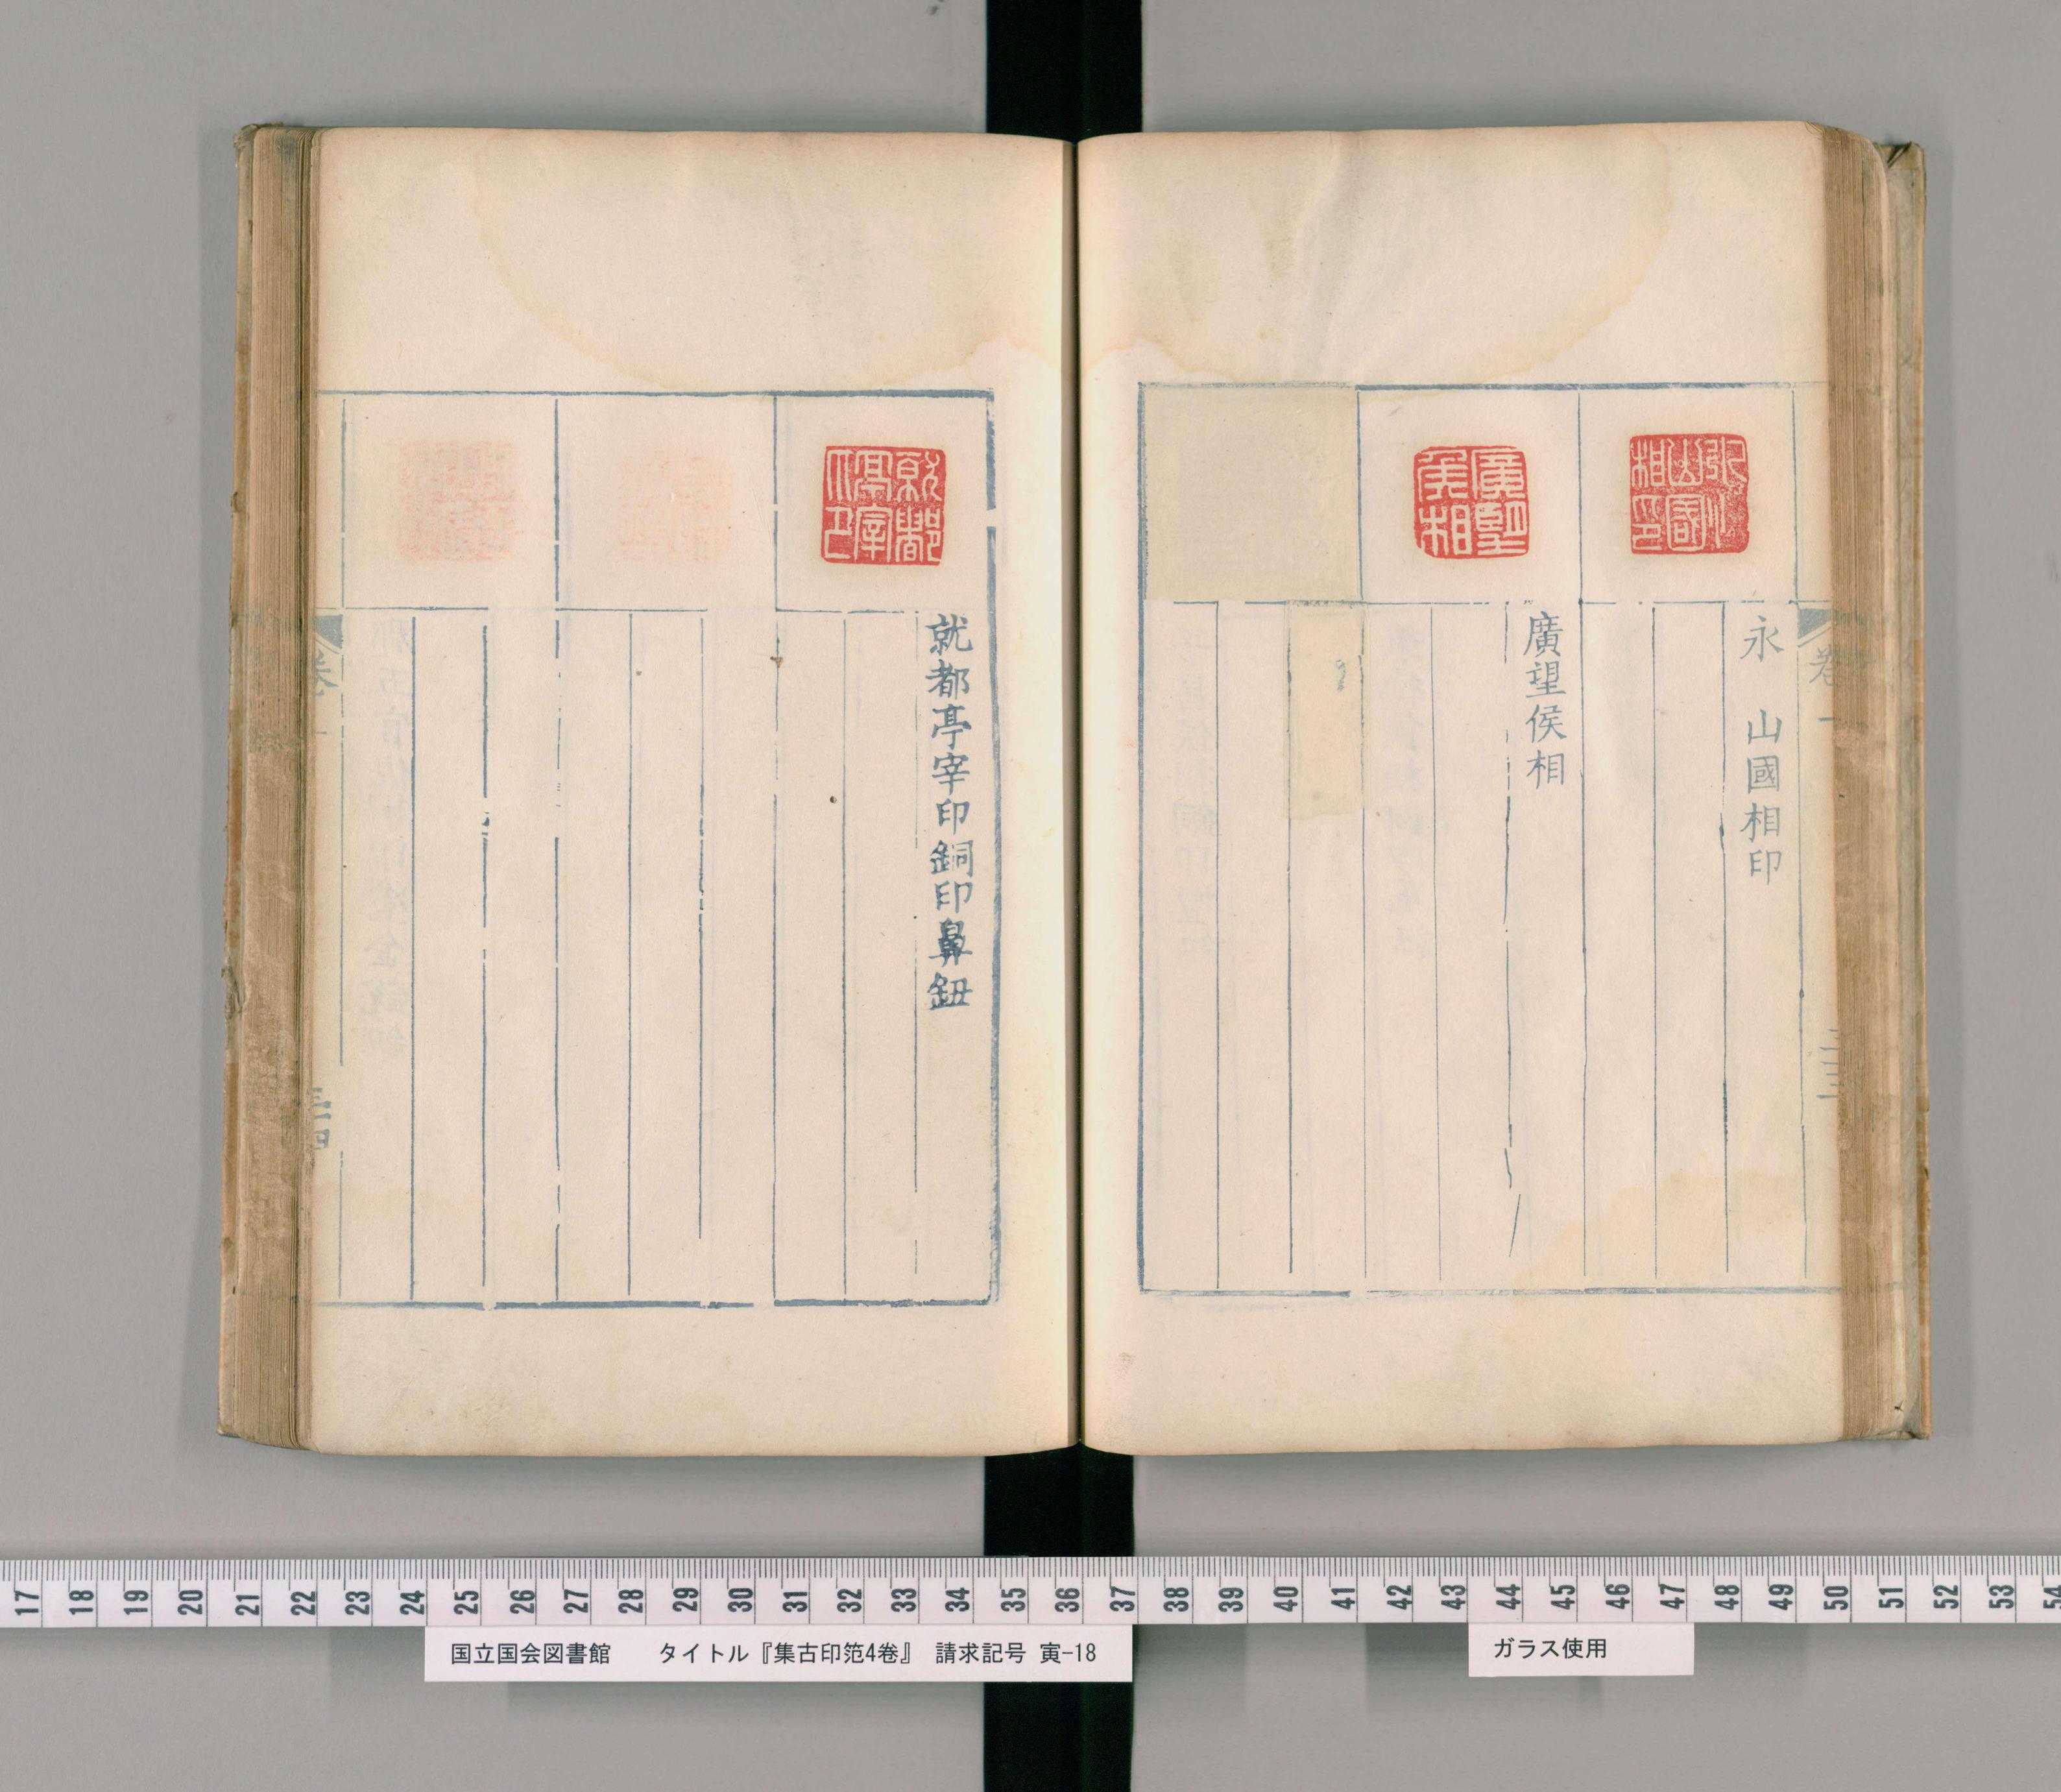 卷一
三三
永 山國相印
廣望侯相
就都亭宰印銅印鼻鈕
卷一
三四
17 18 19 20 21 22 23 24 25 26 27 28 29 30 31 32 33 34 35 36 37 38 39 40 41 42 43 44 45 46 47 48 49 50 51 52 53 54
国立国会図書館 タイトル『集古印笵4巻』 請求記号 寅-18
ガラス使用